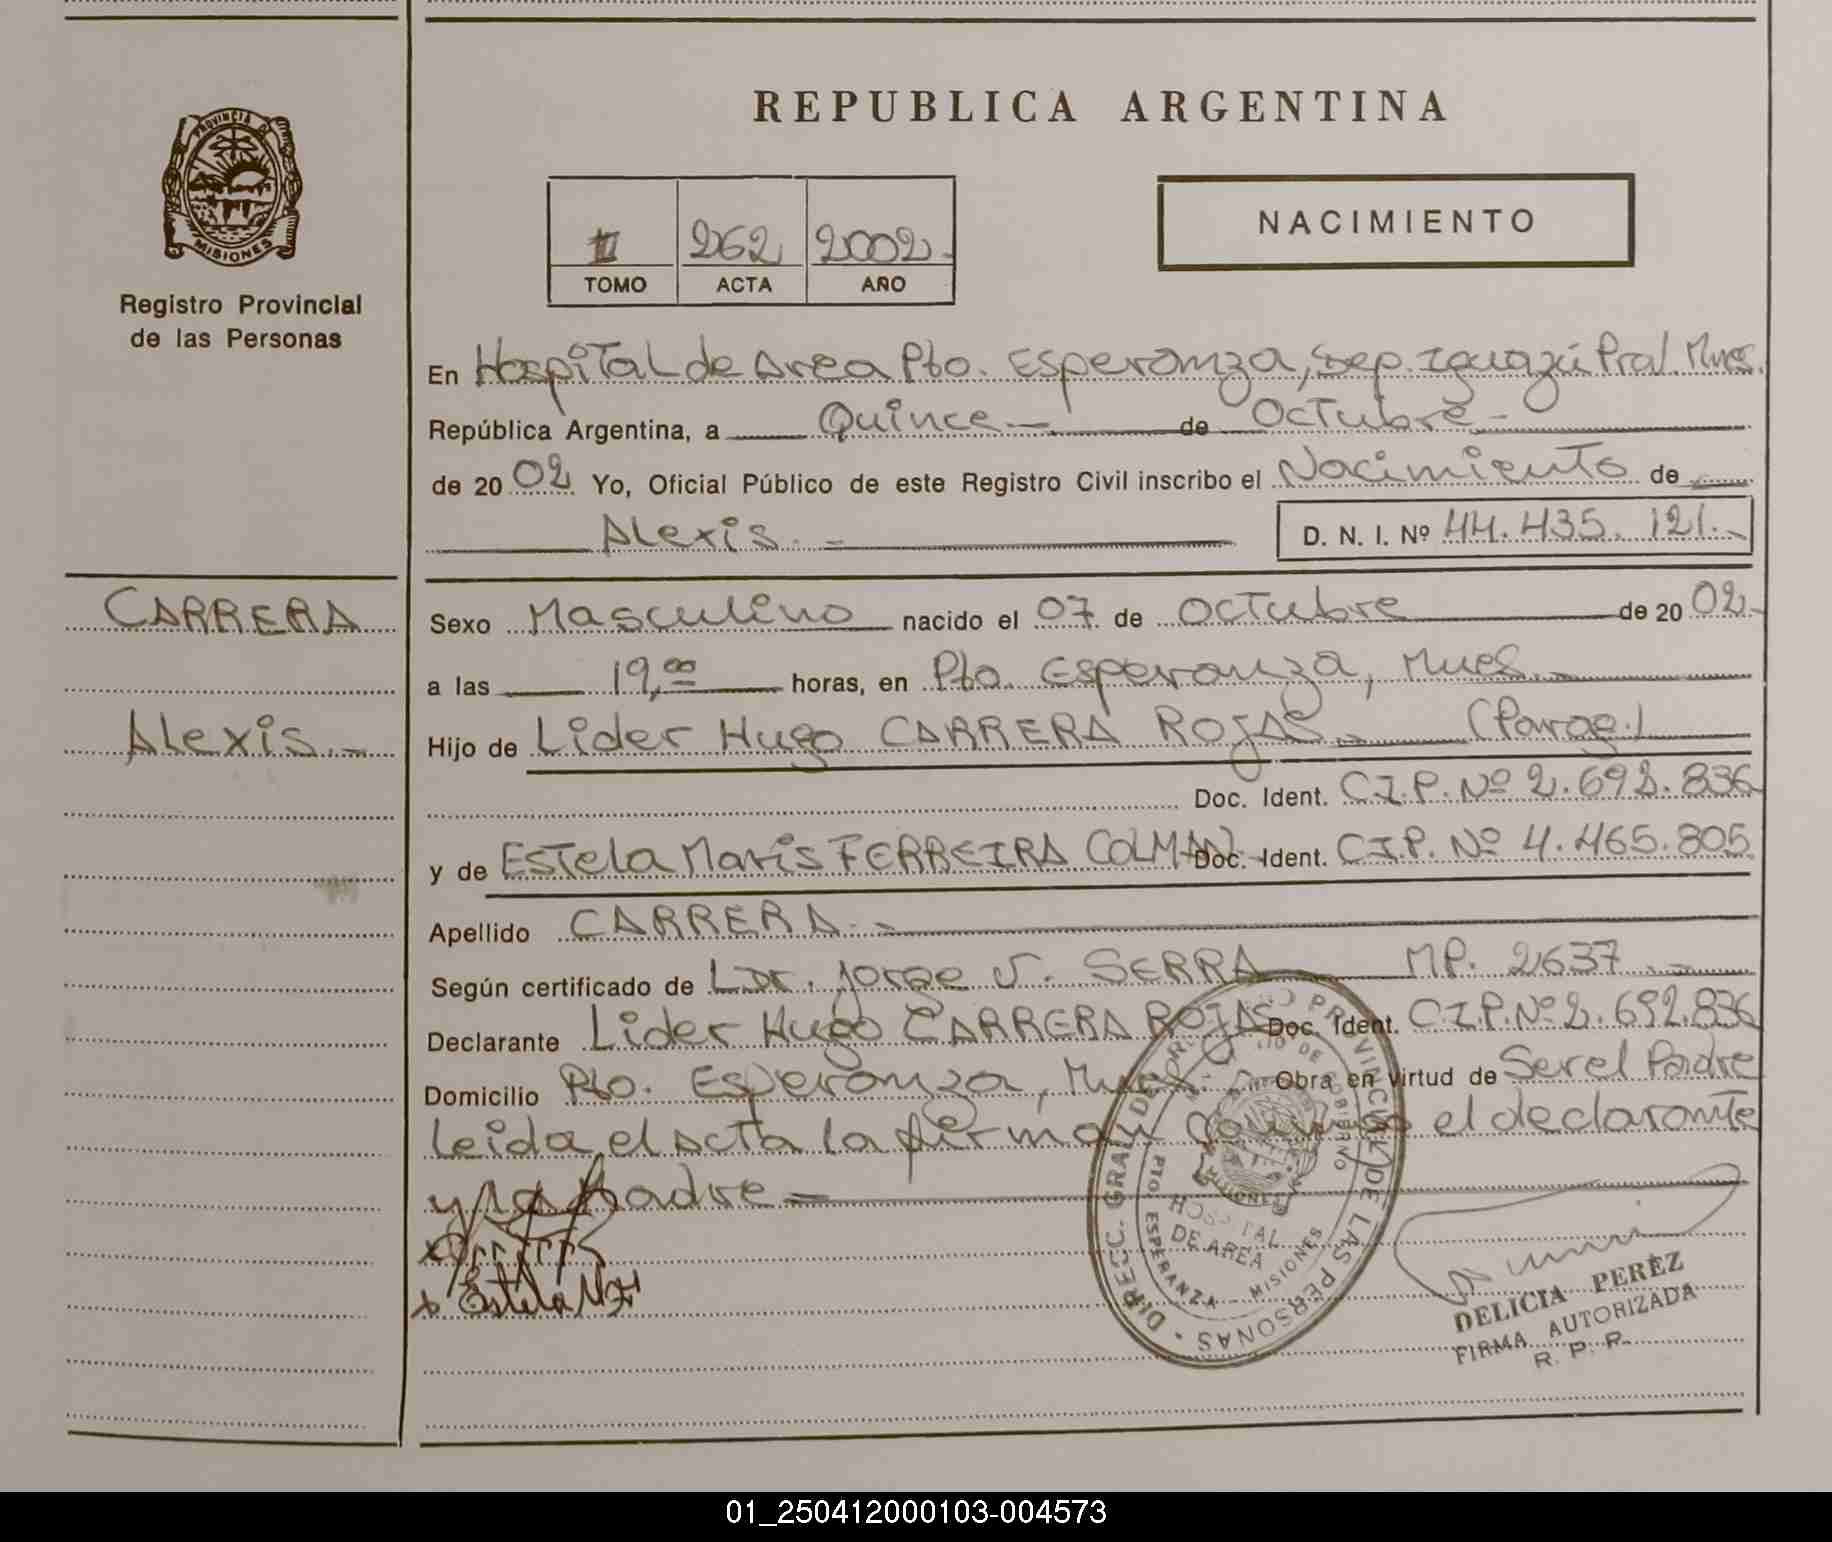 REPUBLICA ARGENTINA
PROVINCIA DE
MISIONES
Registro Provincial
de las Personas
II 262 2002.-
TOMO ACTA AÑO
NACIMIENTO
En Hospital de Area Pto. Esperanza, Dep. Iguazú Pral. Mnes.
República Argentina, a Quince.- de Octubre.-
de 2002 Yo, Oficial Público de este Registro Civil inscribo el Nacimiento de
Alexis.- D. N. I. Nº 44.435.121.-
CARRERA
Alexis.-
Sexo Masculino nacido el 07 de Octubre de 2002.-
a las 19,00 horas, en Pto. Esperanza, Mnes.-
Hijo de Lider Hugo CARRERA ROJAS.- (Parag.)
Doc. Ident. C.I.P. Nº 2.692.836
y de Estela Maris FERREIRA COLMAN.- Doc. Ident. C.I.P. Nº 4.465.805
Apellido CARRERA.-
Según certificado de Dr. Jorge V. SERRA MP. 2637.-
Declarante Lider Hugo CARRERA ROJAS Doc. Ident. C.I.P. Nº 2.692.836
Domicilio Pto. Esperanza, Mnes. Obra en virtud de Ser el Padre
leida el acta la firman el declarante
y la Madre.=
Estela M F
DIRECC. GRAL. DEL PROVINCIAL DE LAS PERSONAS
DE GOBIERNO
MISIONES
HOSPITAL
DE AREA
PTO. ESPERANZA - MISIONES
DELICIA PEREZ
FIRMA AUTORIZADA
R. P. P.
01_250412000103-004573